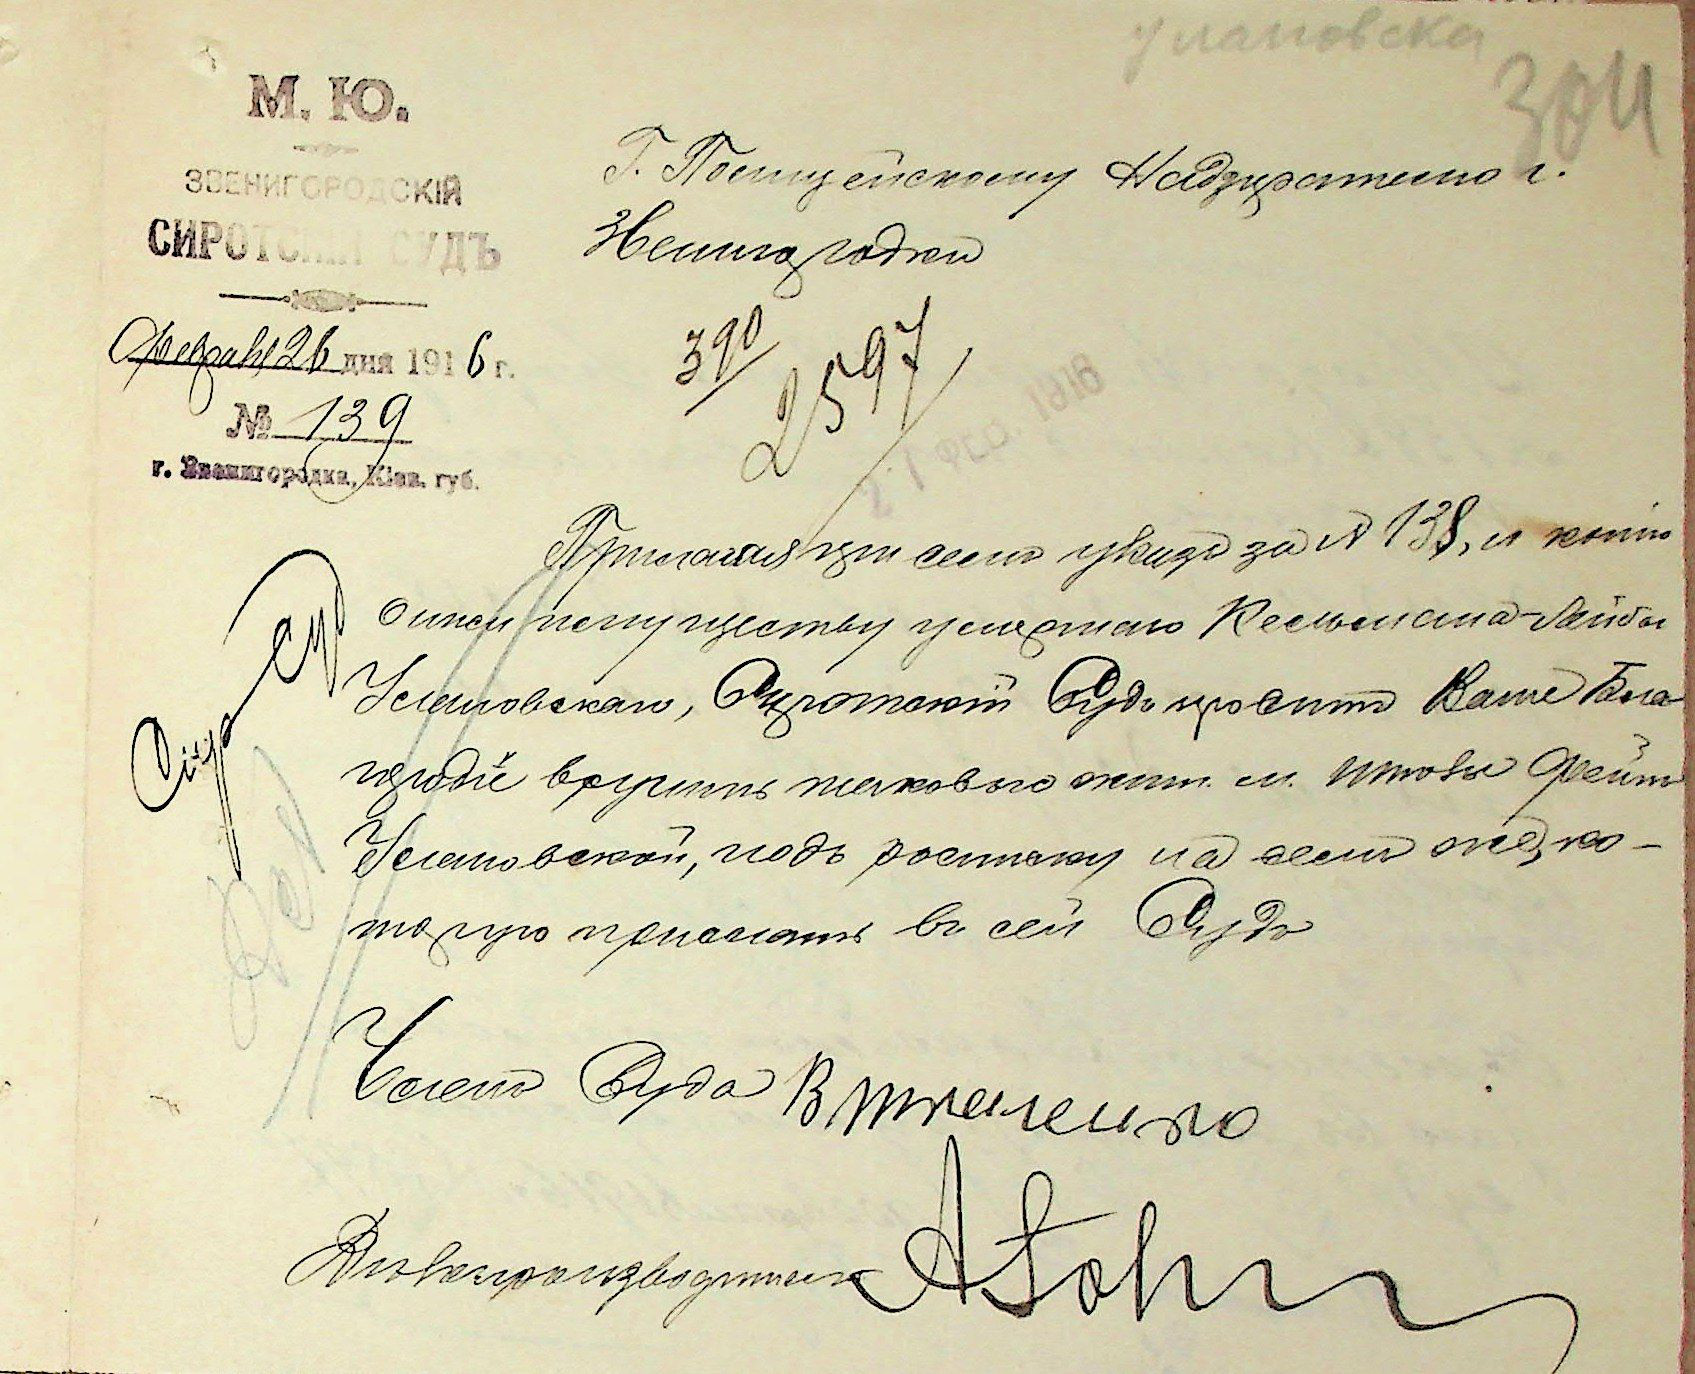 улановска
304
М. Ю.
ЗВЕНИГОРОДСКІЙ
СИРОТСКІЙ СУДЪ
Февраля 26 дня 1916 г.
№ 139
г. Звенигородка, Кіев. губ.
Г. Полицейскому Надзирателю г.
Звенигородки
390
2597
27 ФЕВ. 1916
Прилагая при семъ указъ за № 138, и копію
описи имуществу умершаго Кельмана-Лейбы
Улановскаго, Сиротскій Судъ проситъ Ваше Бла
городіе вручить таковые жит. м. Фейги
Улановской, подъ росписку на семъ же, ко-
торую прислать въ сей Судъ
Членъ Суда В Ткаленко
Дѣлопроизводитель
Сир Суд